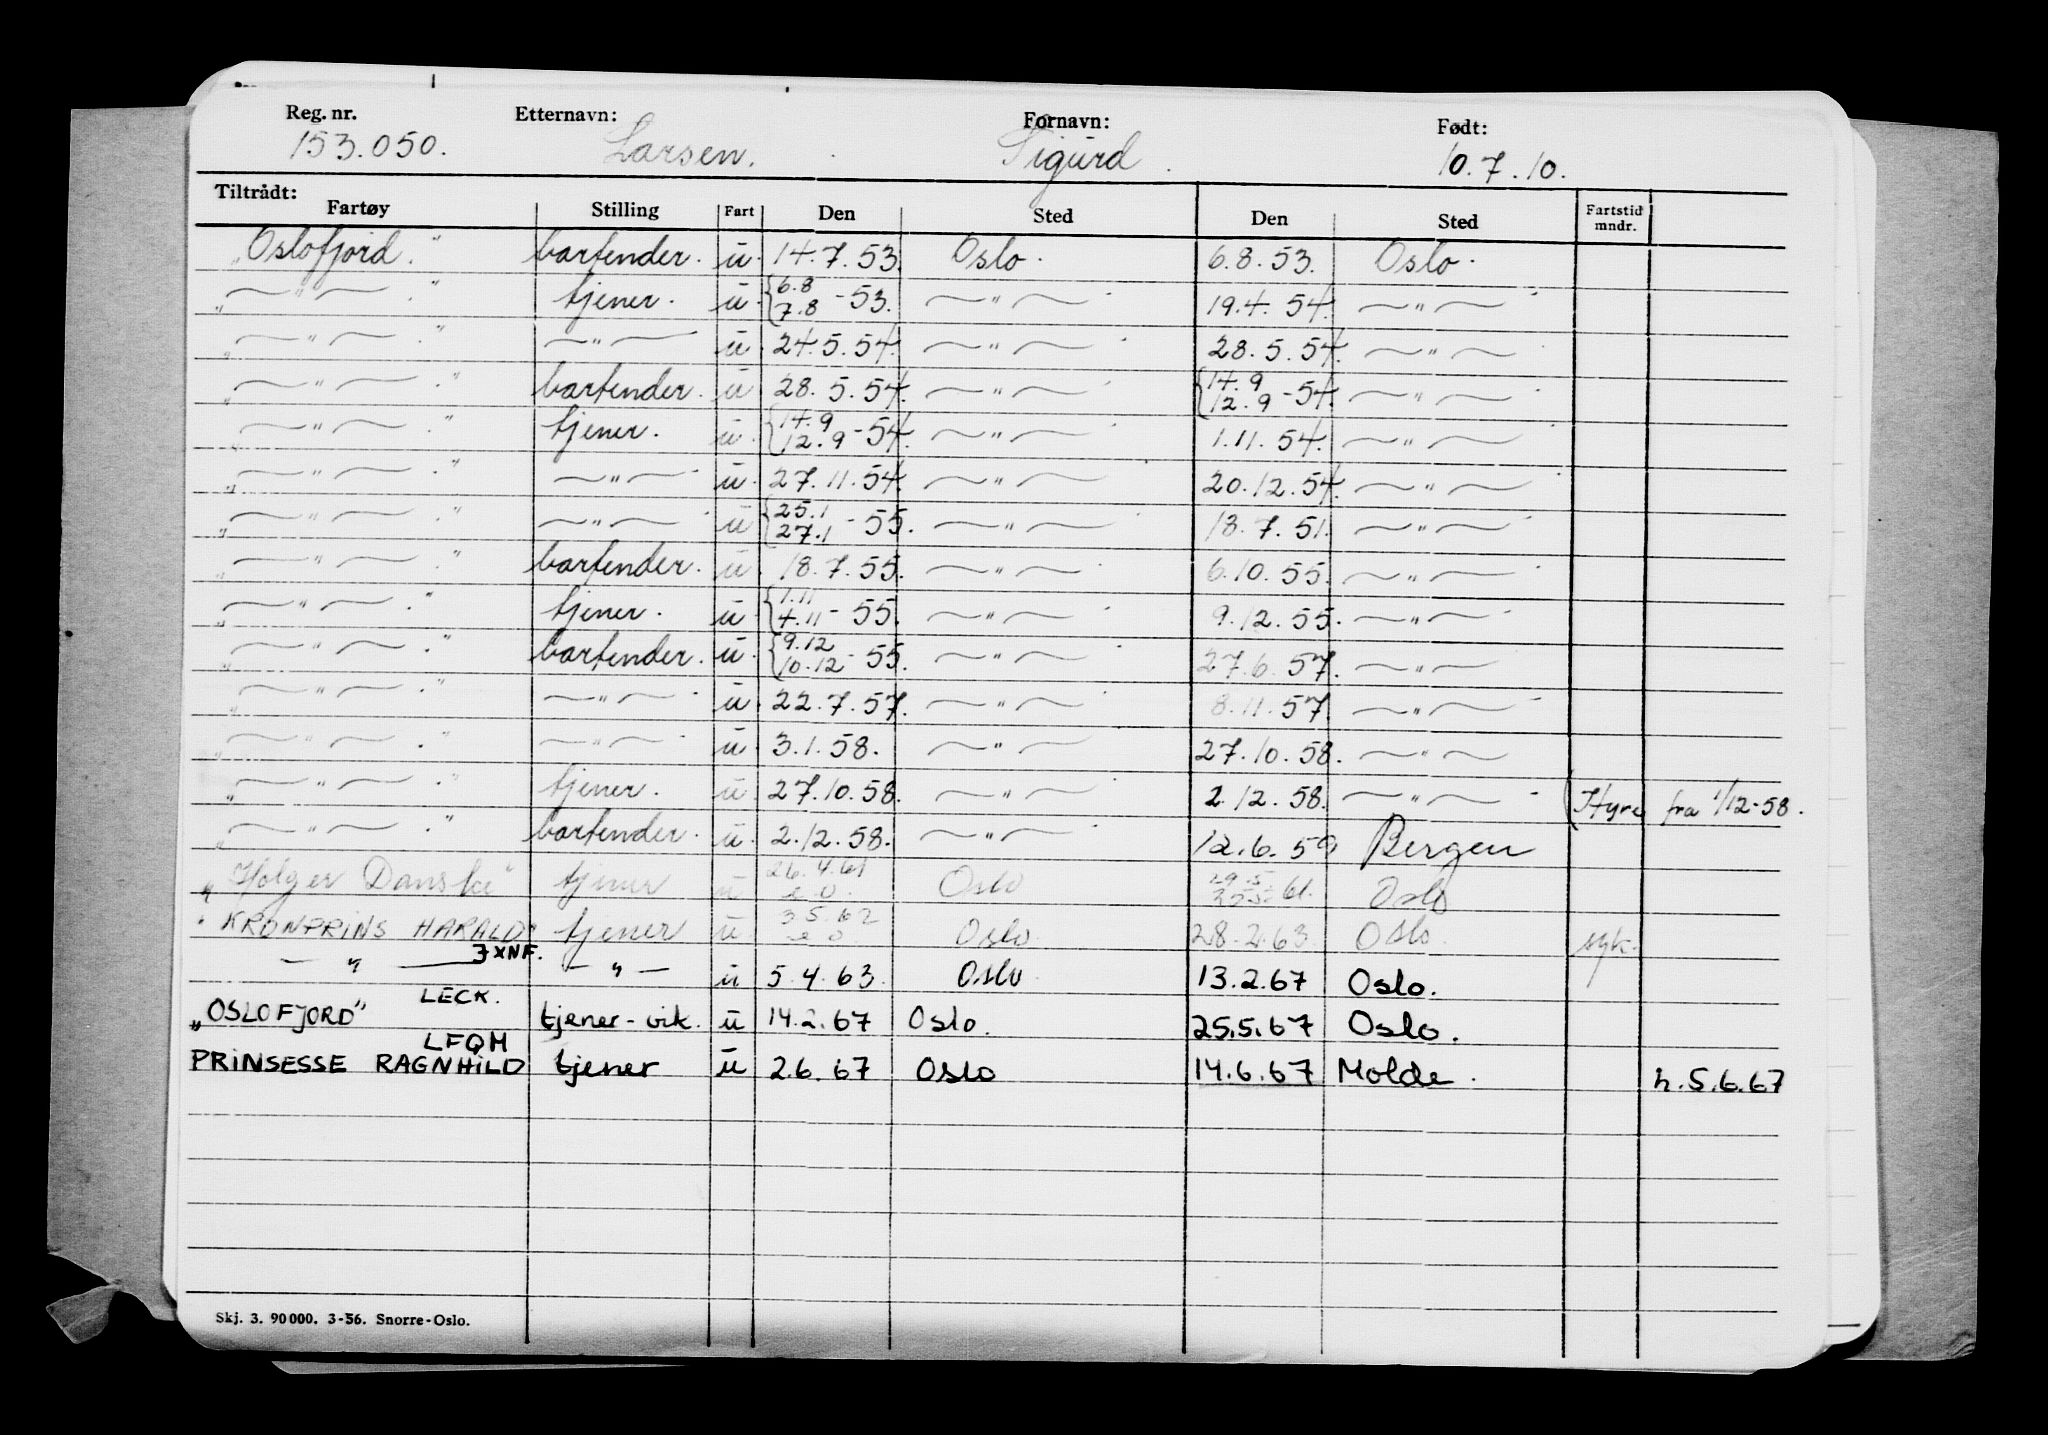 Reg. nr. Etternavn: Fornavn: Født:
153.050. Larsen. Sigurd. 10.7.10.
Tiltrådt:
Fartøy Stilling Fart Den Sted Den Sted Fartstid mndr.
„Oslofjord.” bartender. u. 14.7.53. Oslo. 6.8.53. Oslo.
„—"—." tjener. u. {6.8 7.8 -53. —"— 19.4.54. —"—
„—"—." —"— u. 24.5.54. —"— 28.5.54. —"—
„—"—." bartender. u. 28.5.54. —"— {14.9 12.9 -54. —"—
„—"—." tjener. u. {14.9 12.9 -54. —"— 1.11.54. —"—
„—"—." —"— u. 27.11.54. —"— 20.12.54. —"—
„—"—." —"— u. {25.1 27.1 -55. —"— 18.7.51. —"—
„—"—." bartender. u. 18.7.55. —"— 6.10.55. —"—
„—"—." tjener. u. {1.11 4.11 -55. —"— 9.12.55. —"—
„—"—." bartender. u. {9.12 10.12 -55. —"— 27.6.57. —"—
„—"—." —"— u. 22.7.57. —"— 8.11.57. —"—
„—"—." —"— u. 3.1.58. —"— 27.10.58. —"—
„—"—." tjener. u. 27.10.58. —"— 2.12.58. —"— (Hyre fra 1/12-58.
„—"—." bartender. u. 2.12.58. —"— 12.6.59 Bergen
„Holger Danske” tjener u 26.4.61 Oslo 61. Oslo
"KRONPRINS HARALD" tjener u 3.5.62 Oslo. 28.2.63. Oslo. syk.
JXNF.
—"— —"— u 5.4.63. Oslo. 13.2.67 Oslo.
LECK.
„OSLOFJORD” tjener-vik. u 14.2.67 Oslo. 25.5.67 Oslo.
LFQM
PRINSESSE RAGNHILD tjener u 2.6.67 Oslo 14.6.67 Molde. h.5.6.67
Skj. 3. 90000. 3-56. Snorre-Oslo.